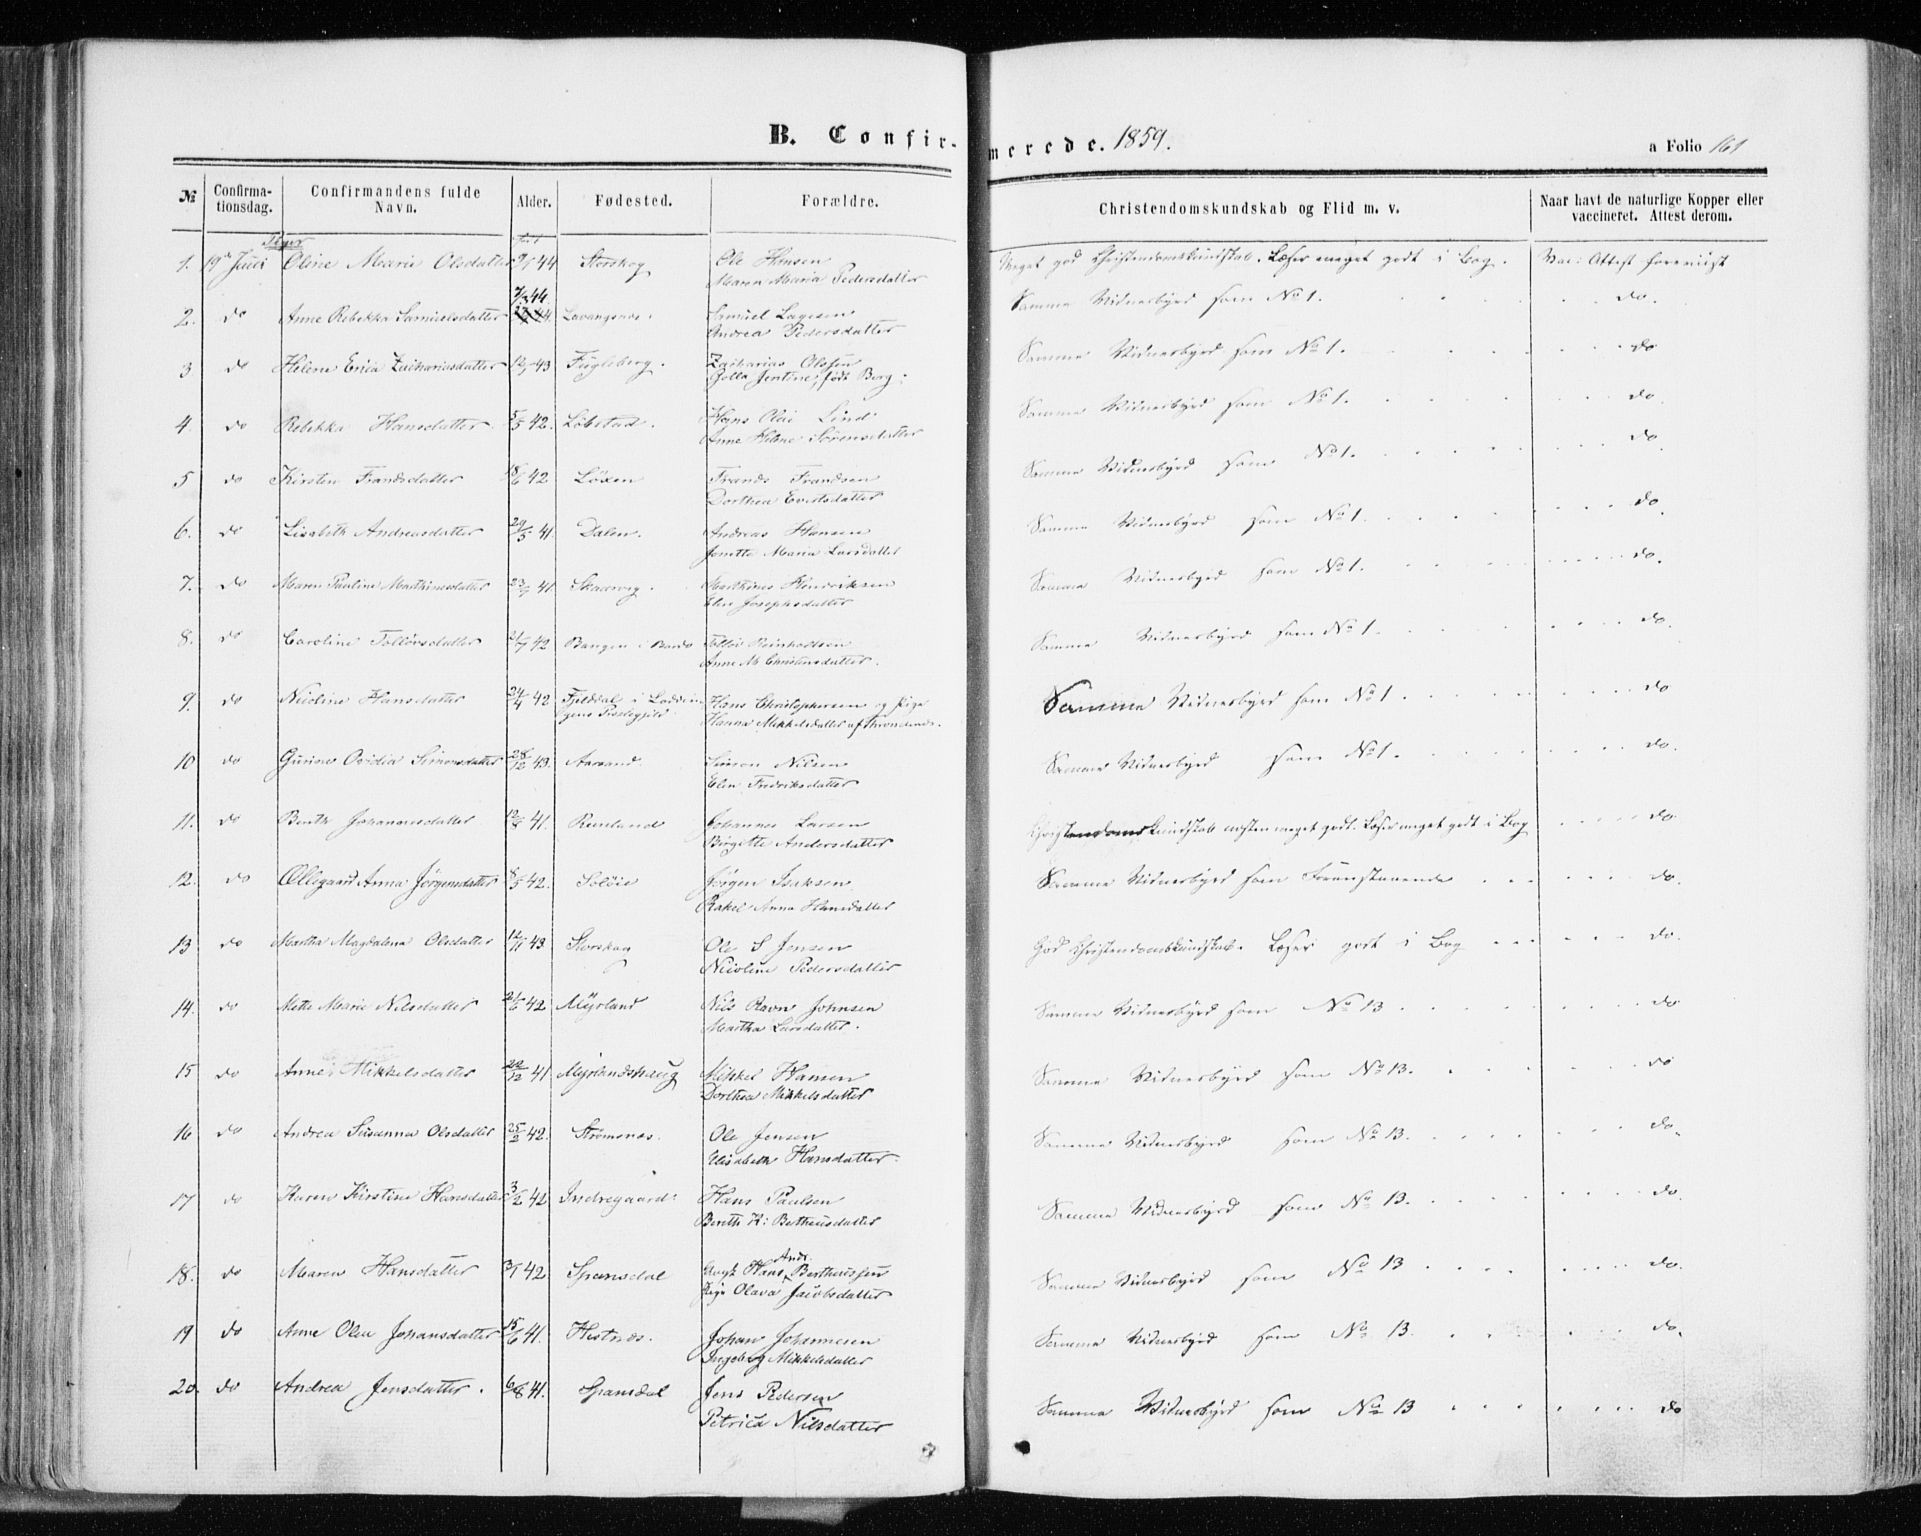 B. Confirmerede. 1859.
a Folio 161
№ Confirmationsdag. Confirmandens fulde Navn. Alder. Fødested. Forældre. Christendomskundskab og Flid m. v. Naar havt de naturlige Kopper eller vaccineret. Attest derom.
Piger
1. 19de Juni Oline Marie Olsdatter 9/1 44 Storskog Ole Hansen Meget god Christendomskundskab. Læser meget godt i Bog. Vac: Attest foreviist
Maren Maria Pedersdatter
2. do Anne Rebekka Samuelsdatter 7/3 44 Lavangsnæs. Samuel Lagesen Samme Vidnesbyrd som No 1. do.
Andrea Pedersdatter
3 do Helene Erica Zachariasdatter 12/7 43 Fugleberg. Zacharias Olssen Samme Vidnesbyrd som No 1. do
Jentine, født Borg.
4 do Rebekka Hansdatter 5/5 42. Løbstad. Hans Olai Lind Samme Vidnesbyrd som No 1. do.
Anne Helene Sørensdatter
5 do Kirsten Frandsdatter 18/6 42 Løxen Frands Frandsen Samme Vidnesbyrd som No 1. do
Dorthea Evertsdatter
6. do Lisabeth Andreasdatter 29/5 41 Dalen. Andreas Hansen Samme Vidnesbyrd som No 1. do.
Janetta Maria Larsdatter
7. do Maren Pauline Marthinusdatter 23/7 41 Skaarvig. Marthinus Hendriksen Samme Vidnesbyrd som No 1. do.
Elen Josephsdatter
8. do Caroline Tolløvsdatter 21/7 42 Bangen i Bardo Tolløv Reinholtsen Samme Vidnesbyrd som No 1. do.
Anne M. Christiansdatter.
9. do Nicoline Hansdatter 24/4 42 Fjelddal i Lødingens Præstegjeld Hans Christophersen og Pige Samme Vidnesbyrd som No 1. do
Hanna Mikkelsdatter af Trondenæs.
10 do Gurine Ovidia Simonsdatter 28/12 43. Aarsand. Simon Nilsen Samme Vidnesbyrd som No 1. do.
Elen Fredriksdatter
11. do Berith Johannesdatter 12/8 41. Renland Johannes Larsen Christendomskundskab næsten meget godt. Læser meget godt i Bog do.
Birgitte Andersdatter
12. do Ollegaard Anna Jörgensdatter 8/5 42. Soløie Jörgen Isaksen Samme Vidnesbyrd som Foranstaaende do.
Rakel Anna Hansdatter
13 do Martha Magdalena Olsdatter 12/11 43 Storskog Ole S Jensen God Christendomskundskab. Læser godt i Bog do.
Nicoline Pedersdatter
14. do Mette Marie Nilsdatter 21/6 42 Myrland Nils Ravn Johnsen Samme Vidnesbyrd som No 13 do
Martha Larsdatter.
15 do Anne Mikkelsdatter 22/12 41 Myrlandshaug Mikkel Hansen Samme Vidnesbyrd som No 13. do
Dorthea Mikkelsdatter
16 do Andrea Susanna Olsdatter 25/2 42. Strømsnæs. Ole Jensen Samme Vidnesbyrd som No 13. do.
Elisabeth Hansdatter.
17 do Karen Kirstine Hansdatter 3/2 42 Indregaard. Hans Paulsen Samme Vidnesbyrd som No 13. do.
Berith K: Bertheusdatter
18. do Maren Hansdatter 3/1 42 Spansdal Ungk Hans Andr. Bertheussen Samme Vidnesbyrd som No 13 do.
Pige Olava Jacobsdatter
19 do Anne Olea Johansdatter 15/6 41. Hestnæs. Johan Johannesen Samme Vidnesbyrd som No 13. do.
Ingeborg Mikkelsdatter
20. do Andrea Jensdatter. 6/8 41. Spansdal Jens Pedersen Samme Vidnesbyrd som No 13 do
Petrica Nilsdatter